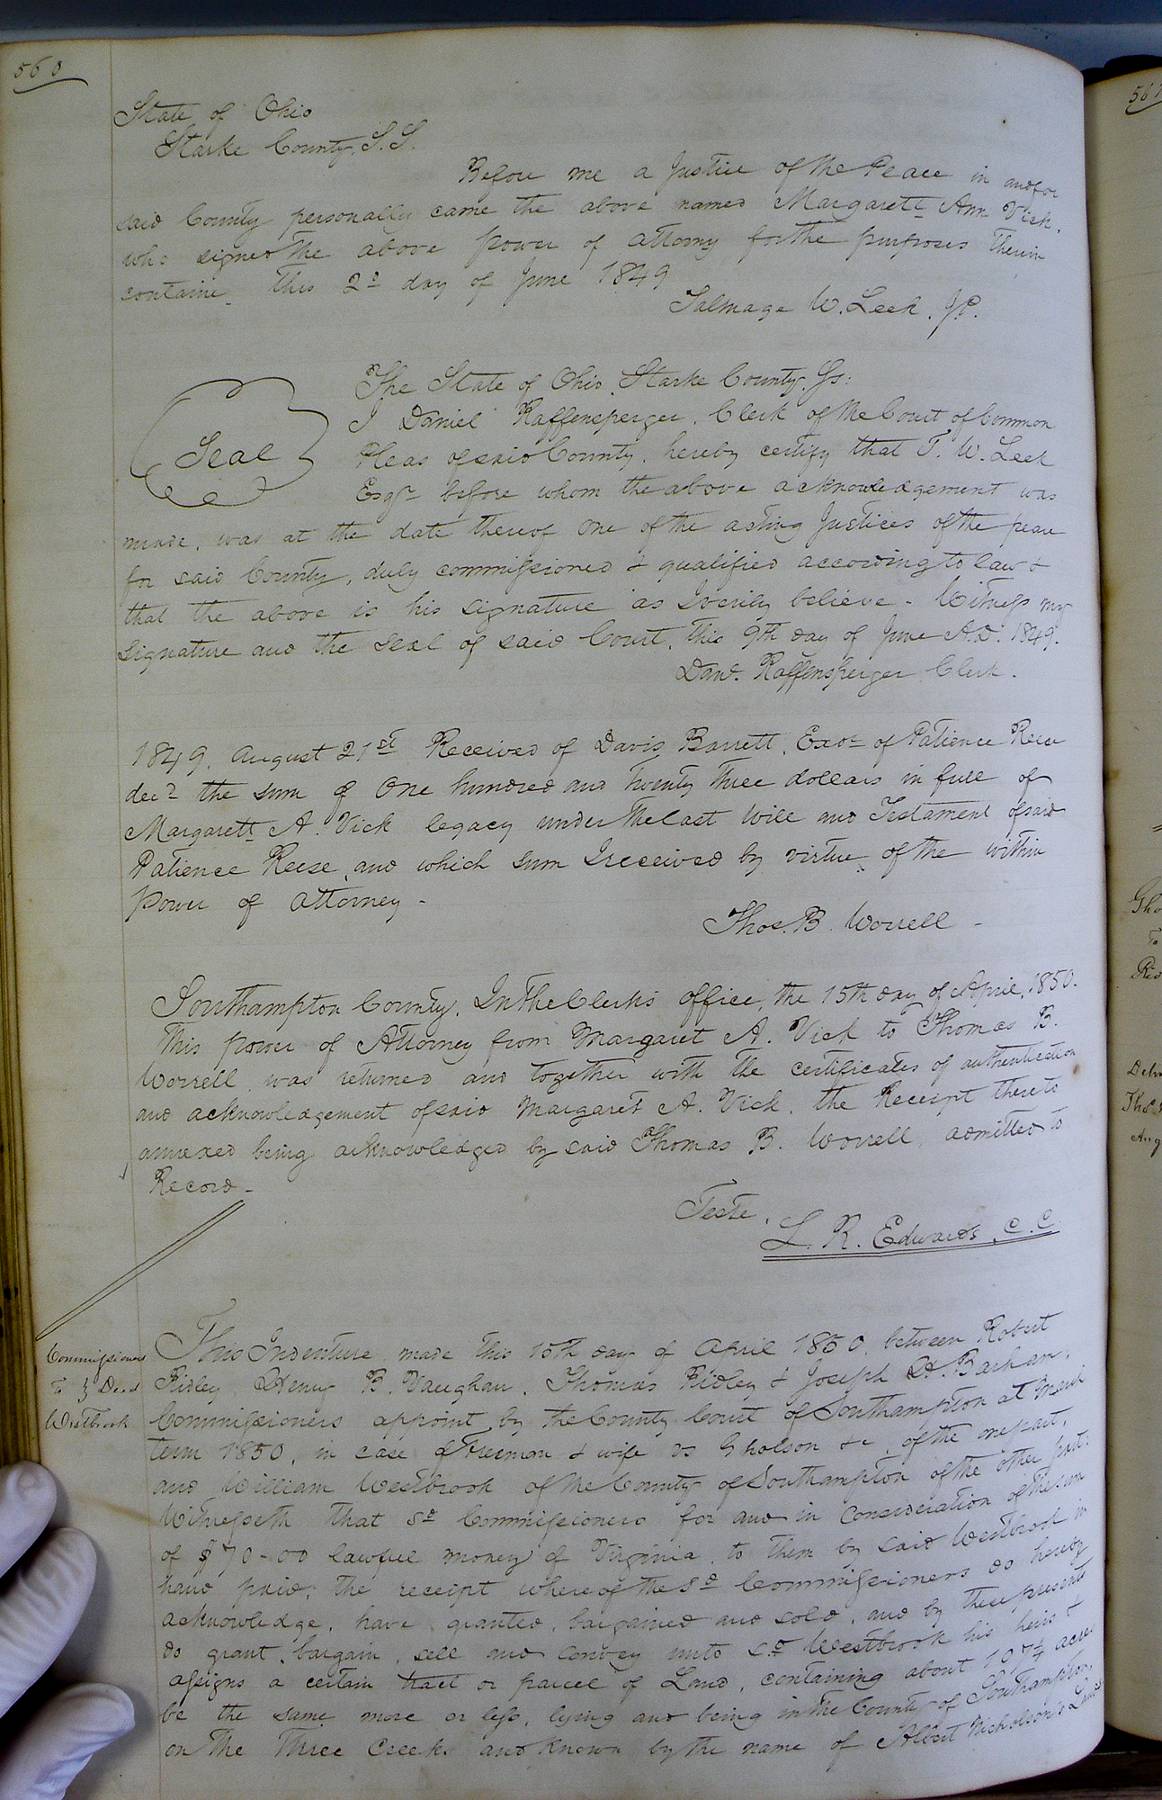 560
State of Ohio
Starke County, S.S.
Before me a Justice of the Peace in and for
said County personally came the above named Margarett Ann Vick.
who signed the above power of attorny for the purposes therein
containe. this 2d day of June 1849
Talmage W. Leek. J.P.
The State of Ohio, Starke County, Ss:
Seal
I Daniel Raffensperger, Clerk of the Court of Common
Pleas of said County, hereby certify that T. W. Leek
Esqr before whom the above acknowledgement was
made, was at the date thereof one of the acting Justices of the peace
for said County, duly commissioned & qualified according to law &
that the above is his signature as I verily believe - Witness my
signature and the seal of said Court, this 9th day of June A.D. 1849.
Danl. Raffensperger Clerk.
1849, August 21st Received of Davis Barrett, Exor of Patience Reese
decd the sum of One hundred and twenty three dollars in full of
Margarett A. Vick legacy under the last Will and Testament of said
Patience Reese, and which sum I received by virtue of the within
Power of attorney -
Thos. B. Worrell -
Southampton County, In the Clerk's office, the 15th day of April, 1850.
This power of Attorney from Margaret A. Vick to Thomas B.
Worrell was returned and together with the certificates of authentication
and acknowledgement of said Margaret A. Vick, the Receipt thereto
annexed being acknowledged by said Thomas B. Worrell, admitted to
Record -
Teste,
L. R. Edwards, C. C.
Commissioners
To } Deed
Westbrook
This Indenture made this 15th day of April 1850, between Robert
Ridley, Henry B. Vaughan, Thomas Ridley & Joseph H. Barham,
Commissioners appoint by the County Court of Southampton at March
term 1850, in case of Freeman & wife vs Gholson &c, of the one part,
and William Westbrook of the County of Southampton of the other part:
Witnesseth that sd Commissioners for and in consideration of the sum
of $70-00 lawful money of Virginia, to them by said Westbrook in
hand paid, the receipt whereof the sd Commissioners do hereby
acknowledge, have granted, bargained and sold, and by these presents
do grant, bargain, sell and convey unto sd Westbrook his heirs &
assigns a certain tract or parcel of Land, containing about acres
be the same more or less, lying and being in the County of Southampton,
on the Three Creeks and known by the name of Albert Nicholson's Land
561